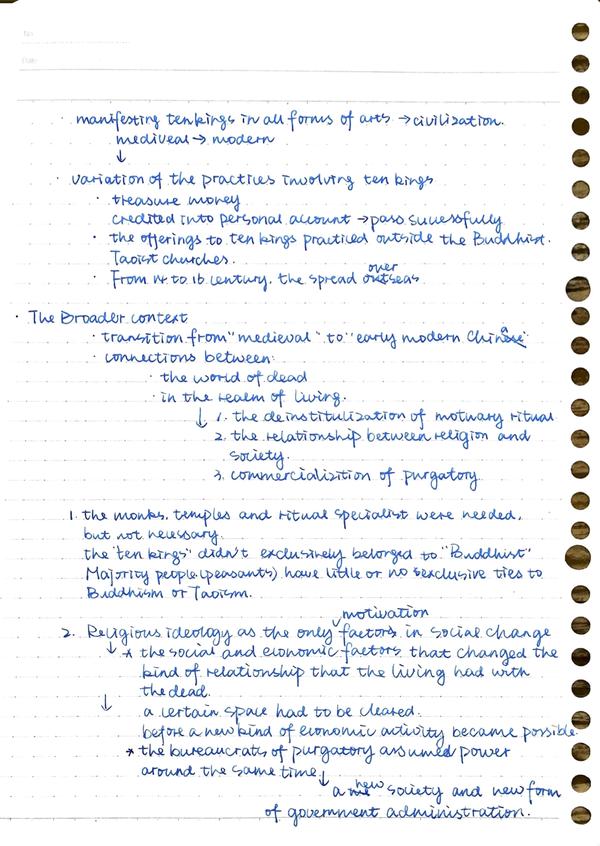 No.
Date
· manifesting ten kings in all forms of arts → civilization.
mediveal → modern
↓
· variation of the practices involving ten kings
· treasure money
credited into personal account → pass sucessfully
· the offerings to ten kings practiced outside the Buddhist.
Taoist churches.
· From 14 to 16 century. the spread over outseas
· The Broader context
· transition from "medieval" to "early modern China"
· connections between:
· the world of dead
· in the realm of living.
↓ 1. the deinstitulization of motuary ritual
2. the relationship between religion and
society.
3. commercializition of purgatory
1. the monks, temples and ritual specialist were needed,
but not necessary.
the "ten kings" didn't exclusively belonged to "Buddhist"
Majority people (peasants) have little or no exclusive ties to
Buddhism or Taoism.
motivation
2. Religious ideology as the only factors in social change
↓ * the social and economic factors that changed the
kind of relationship that the living had with
the dead.
↓ a certain space had to be cleared.
before a new kind of economic activity became possible.
* the bureaucrats of purgatory assumed power
around the same time ↓
a new society and new form
of government administration.